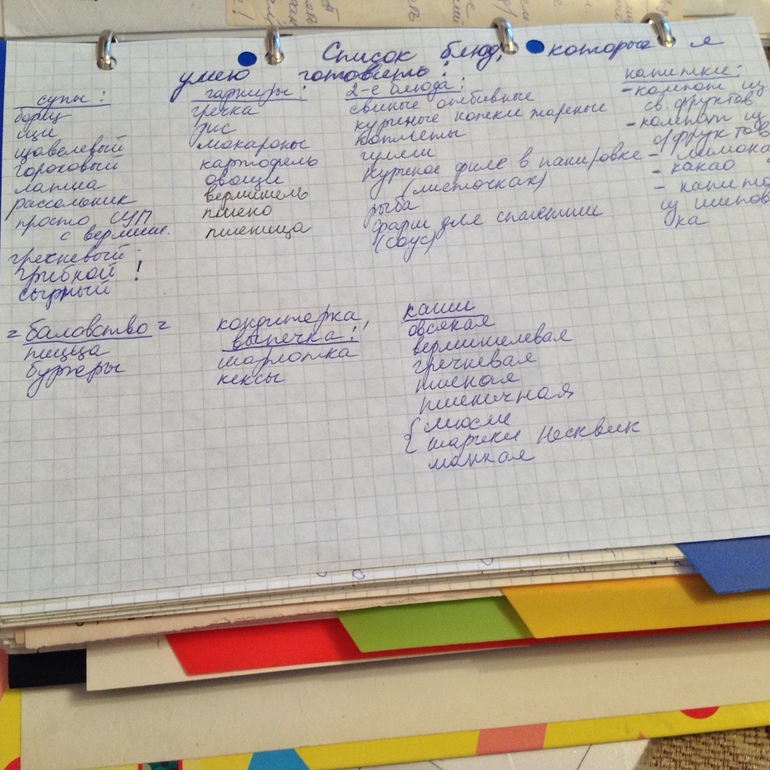 Список блюд, которые я
умею готовить:
супы:
борщ
щи
щавелевый
гороховый
лапша
рассольник
просто суп
с вермиш.
гречневый
грибной !
сырный
гарниры:
гречка
рис
макароны
картофель
овощи
вермишель
пшено
пшеница
2-е блюда:
свиные отбивные
куриные ножки жареные
котлеты
гуляш
куриное филе в панировке
(листочках)
рыба
фарш для спагетти
(соус)
напитки:
- компот из
св. фруктов
- компот из
с/фруктов
- лимона
- какао
- напито
из шипов
ка
= баловство =
пицца
бургеры
кондитерка,
выпечка:
шарлотка
кексы
каши
овсяная
вермишелевая
гречневая
пшеная
пшеничная
{ мюсли
шарики Несквик
манная